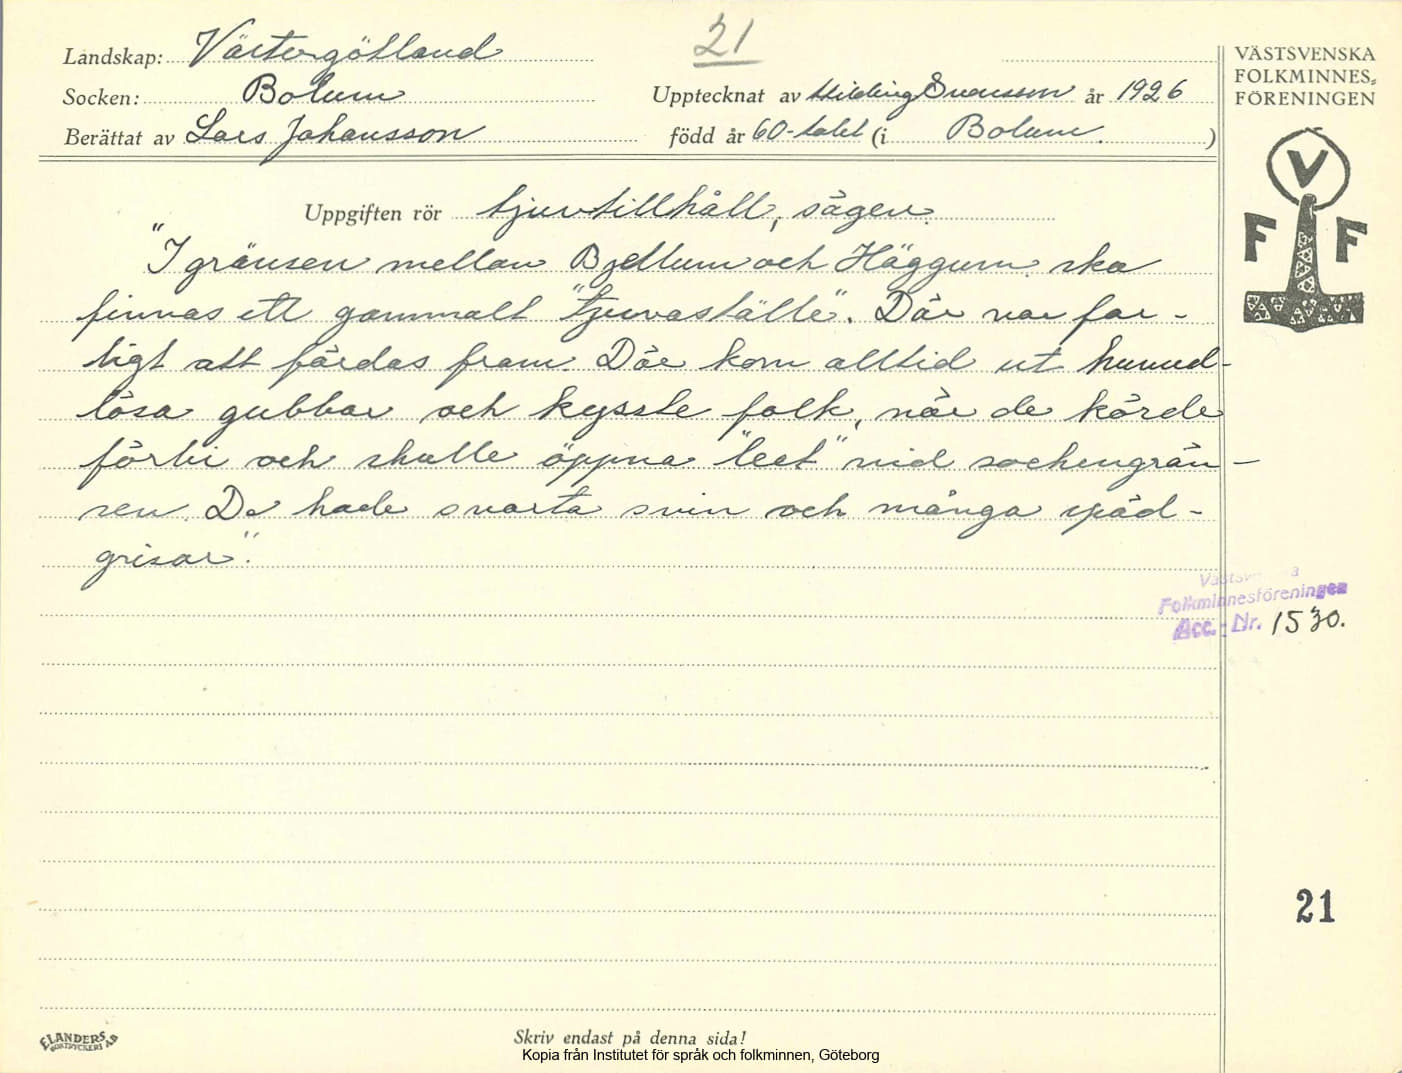 21
Landskap: Västergötland
Socken: Bolum
Upptecknat av Hilding Svensson år 1926
Berättat av Lars Johansson
född år 60-talet (i Bolum. )
VÄSTSVENSKA
FOLKMINNES-
FÖRENINGEN
V
F F
Uppgiften rör tjuvtillhåll, sägen.
"I gränsen mellan Bjellum och Häggum ska
finnas ett gammalt "tjuvaställe". Där var far-
ligt att färdas fram. Där kom alltid ut huvud-
lösa gubbar och kysste folk, när de körde
förbi och skulle öppna "leet" vid sockengrän-
sen. De hade svarta svin och många späd-
grisar".
Folkminnesföreningen
Acc.-Nr. 1530.
21
ELANDERS
BOKTRYCKERI AB
Skriv endast på denna sida!
Kopia från Institutet för språk och folkminnen, Göteborg